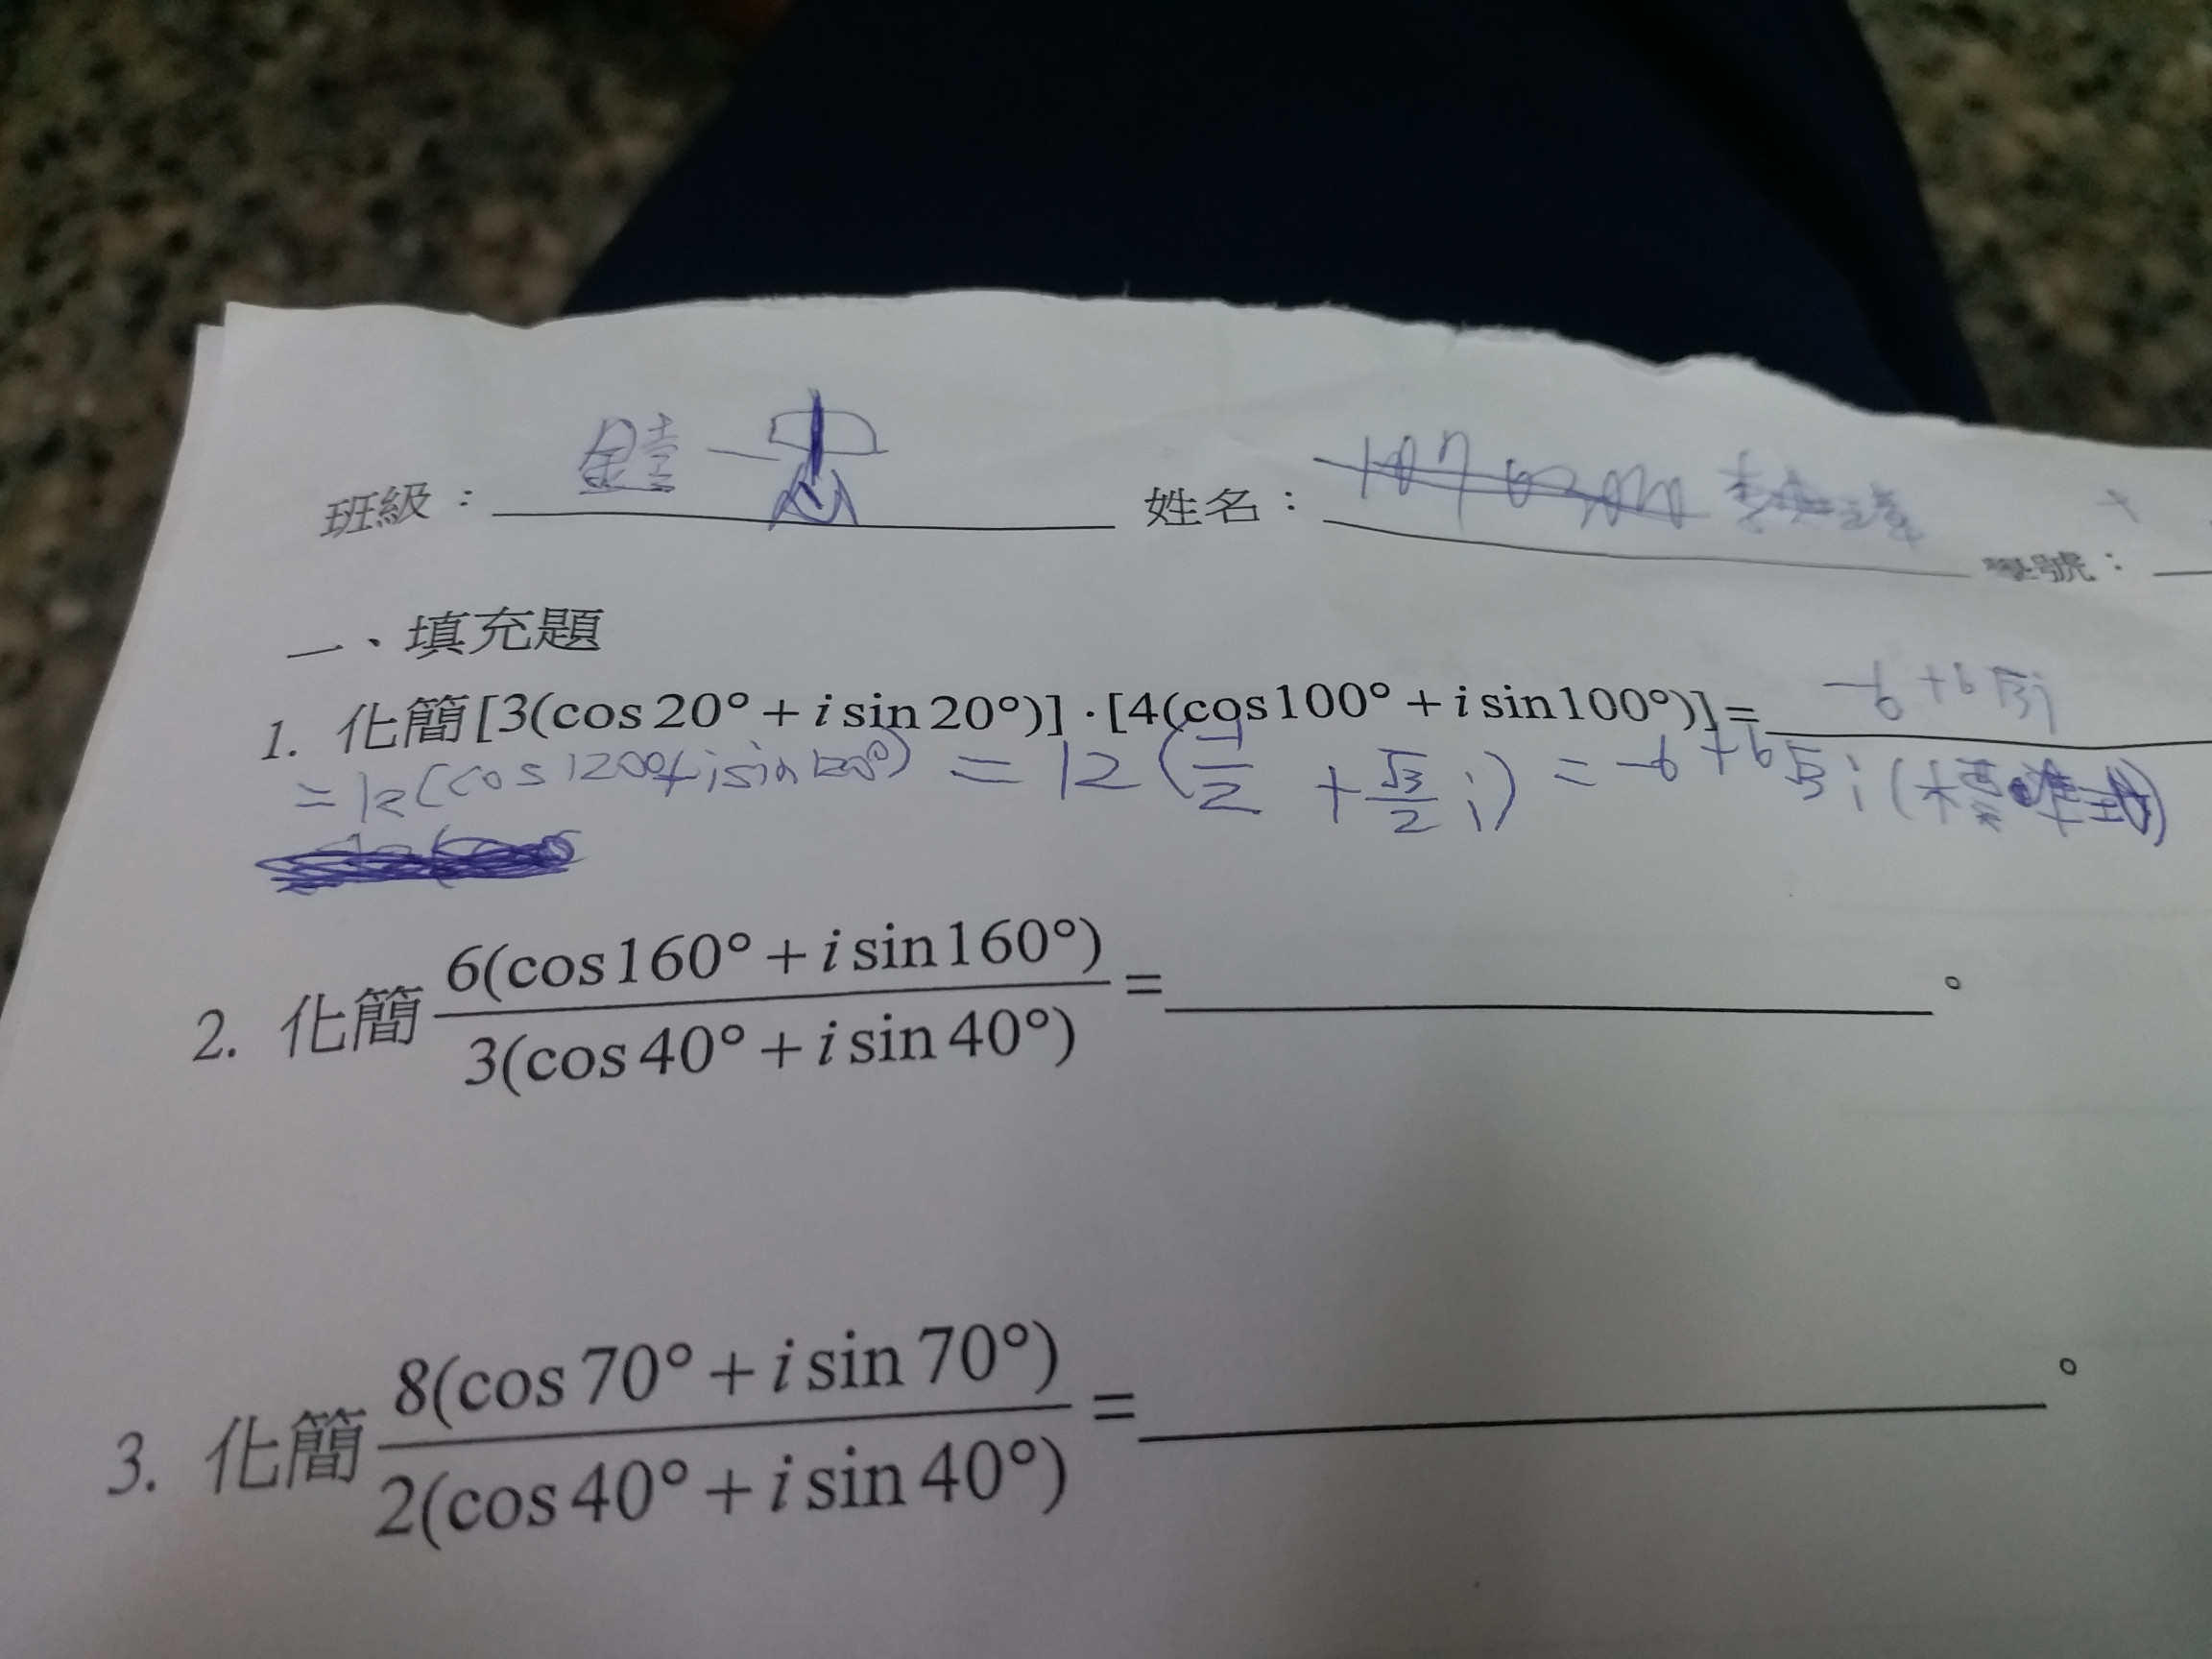 班級： 鍷一忠 姓名： 學號：
一、填充題
1. 化簡[3(cos20°+i sin20°)]·[4(cos100°+i sin100°)]= -6+6√3i
=12(cos120°+isin120°) = 12(-1/2+√3/2 i) = -6+6√3i (標準式)
2. 化簡 6(cos160°+i sin160°)/3(cos40°+i sin40°) = 。
3. 化簡 8(cos70°+i sin70°)/2(cos40°+i sin40°) = 。